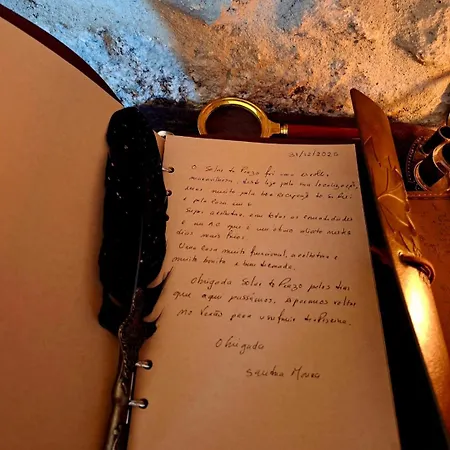 31/12/2020
O Solar do Prazo foi uma escolha
maravilhosa, desde logo pela sua localização,
mas muito pela boa
e pela casa em si
Super acolhedora, com todas as comodidades
e um AC que é um ótimo aliado nestes
dias mais frios.
Uma casa muito funcional, acolhedora e
muito bonita e bem decorada.
Obrigada Solar do Prazo pelos dias
que aqui passámos. Esperamos voltar
no verão para usufruir da piscina.
Obrigada
Sandra Moura